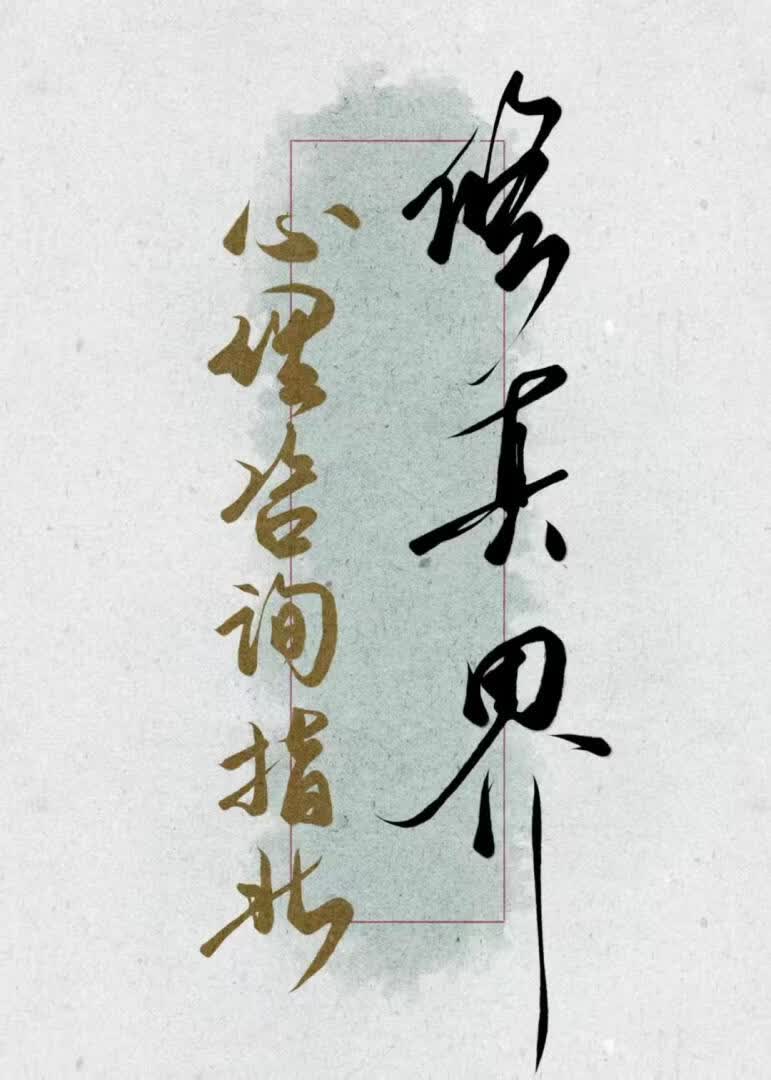 修真界
心理咨询指北